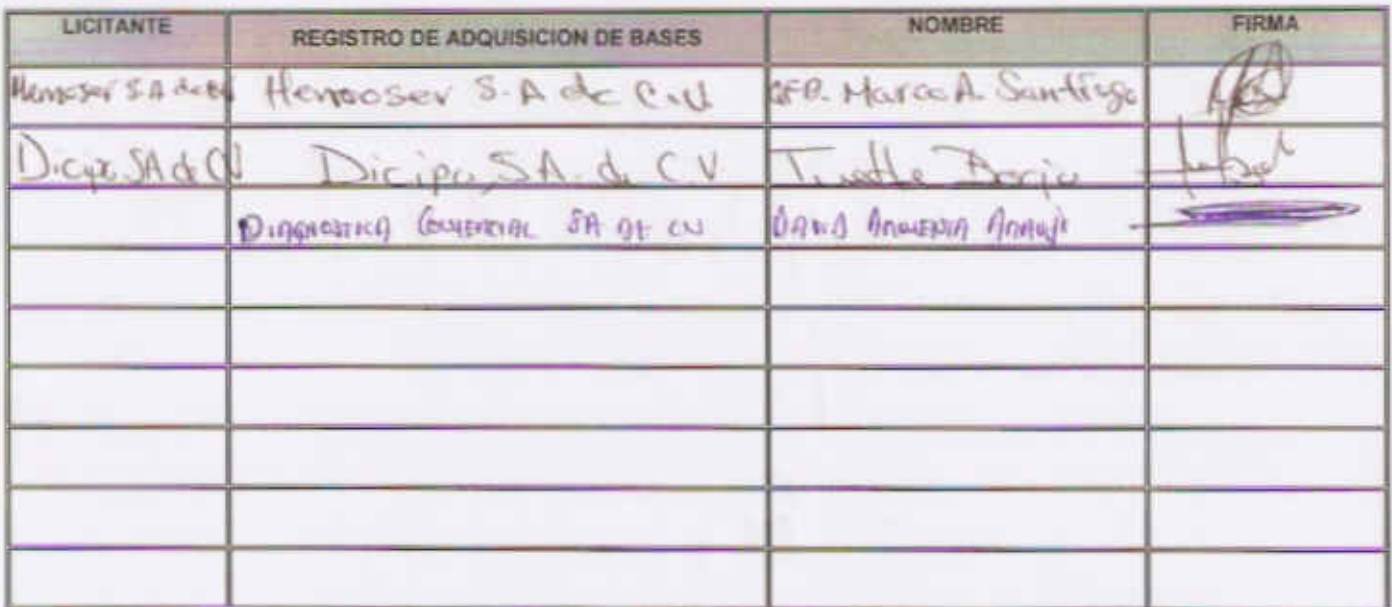 LICITANTE REGISTRO DE ADQUISICION DE BASES NOMBRE FIRMA
Hemoser S.A de Hemoser S.A de C.V Marco A. Santiago
Dicipa, SA de CV Dicipa, S.A. de C.V. Borja
DIAGNOSTICA COMERCIAL SA DE CV DAVID